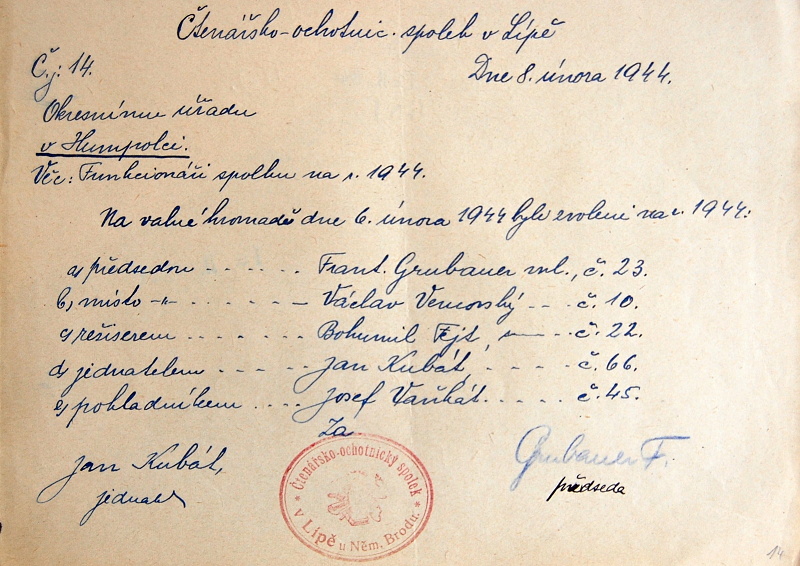 Čtenářsko-ochotnic. spolek v Lípě
Č.j: 14.
Dne 8. února 1944.
Okresnímu úřadu
v Humpolci.
Věc: Funkcionáři spolku na r. 1944.
Na valné hromadě dne 6. února 1944 byli zvoleni na r. 1944:
a, předsedou ...... Frant. Grubauer ml., č. 23.
b, místo -"- ...... Václav Vencovský ... č. 10.
c, režiserem ....... Bohumil Fejt, ... č. 22.
d, jednatelem ..... Jan Kubát, .... č. 66.
e, pokladníkem .... Josef Vaňkát ..... č. 45.
Za
Jan Kubát,
jednatel
Čtenářsko-ochotnický spolek
v Lípě u Něm. Brodu.
Grubauer F.
předseda
14